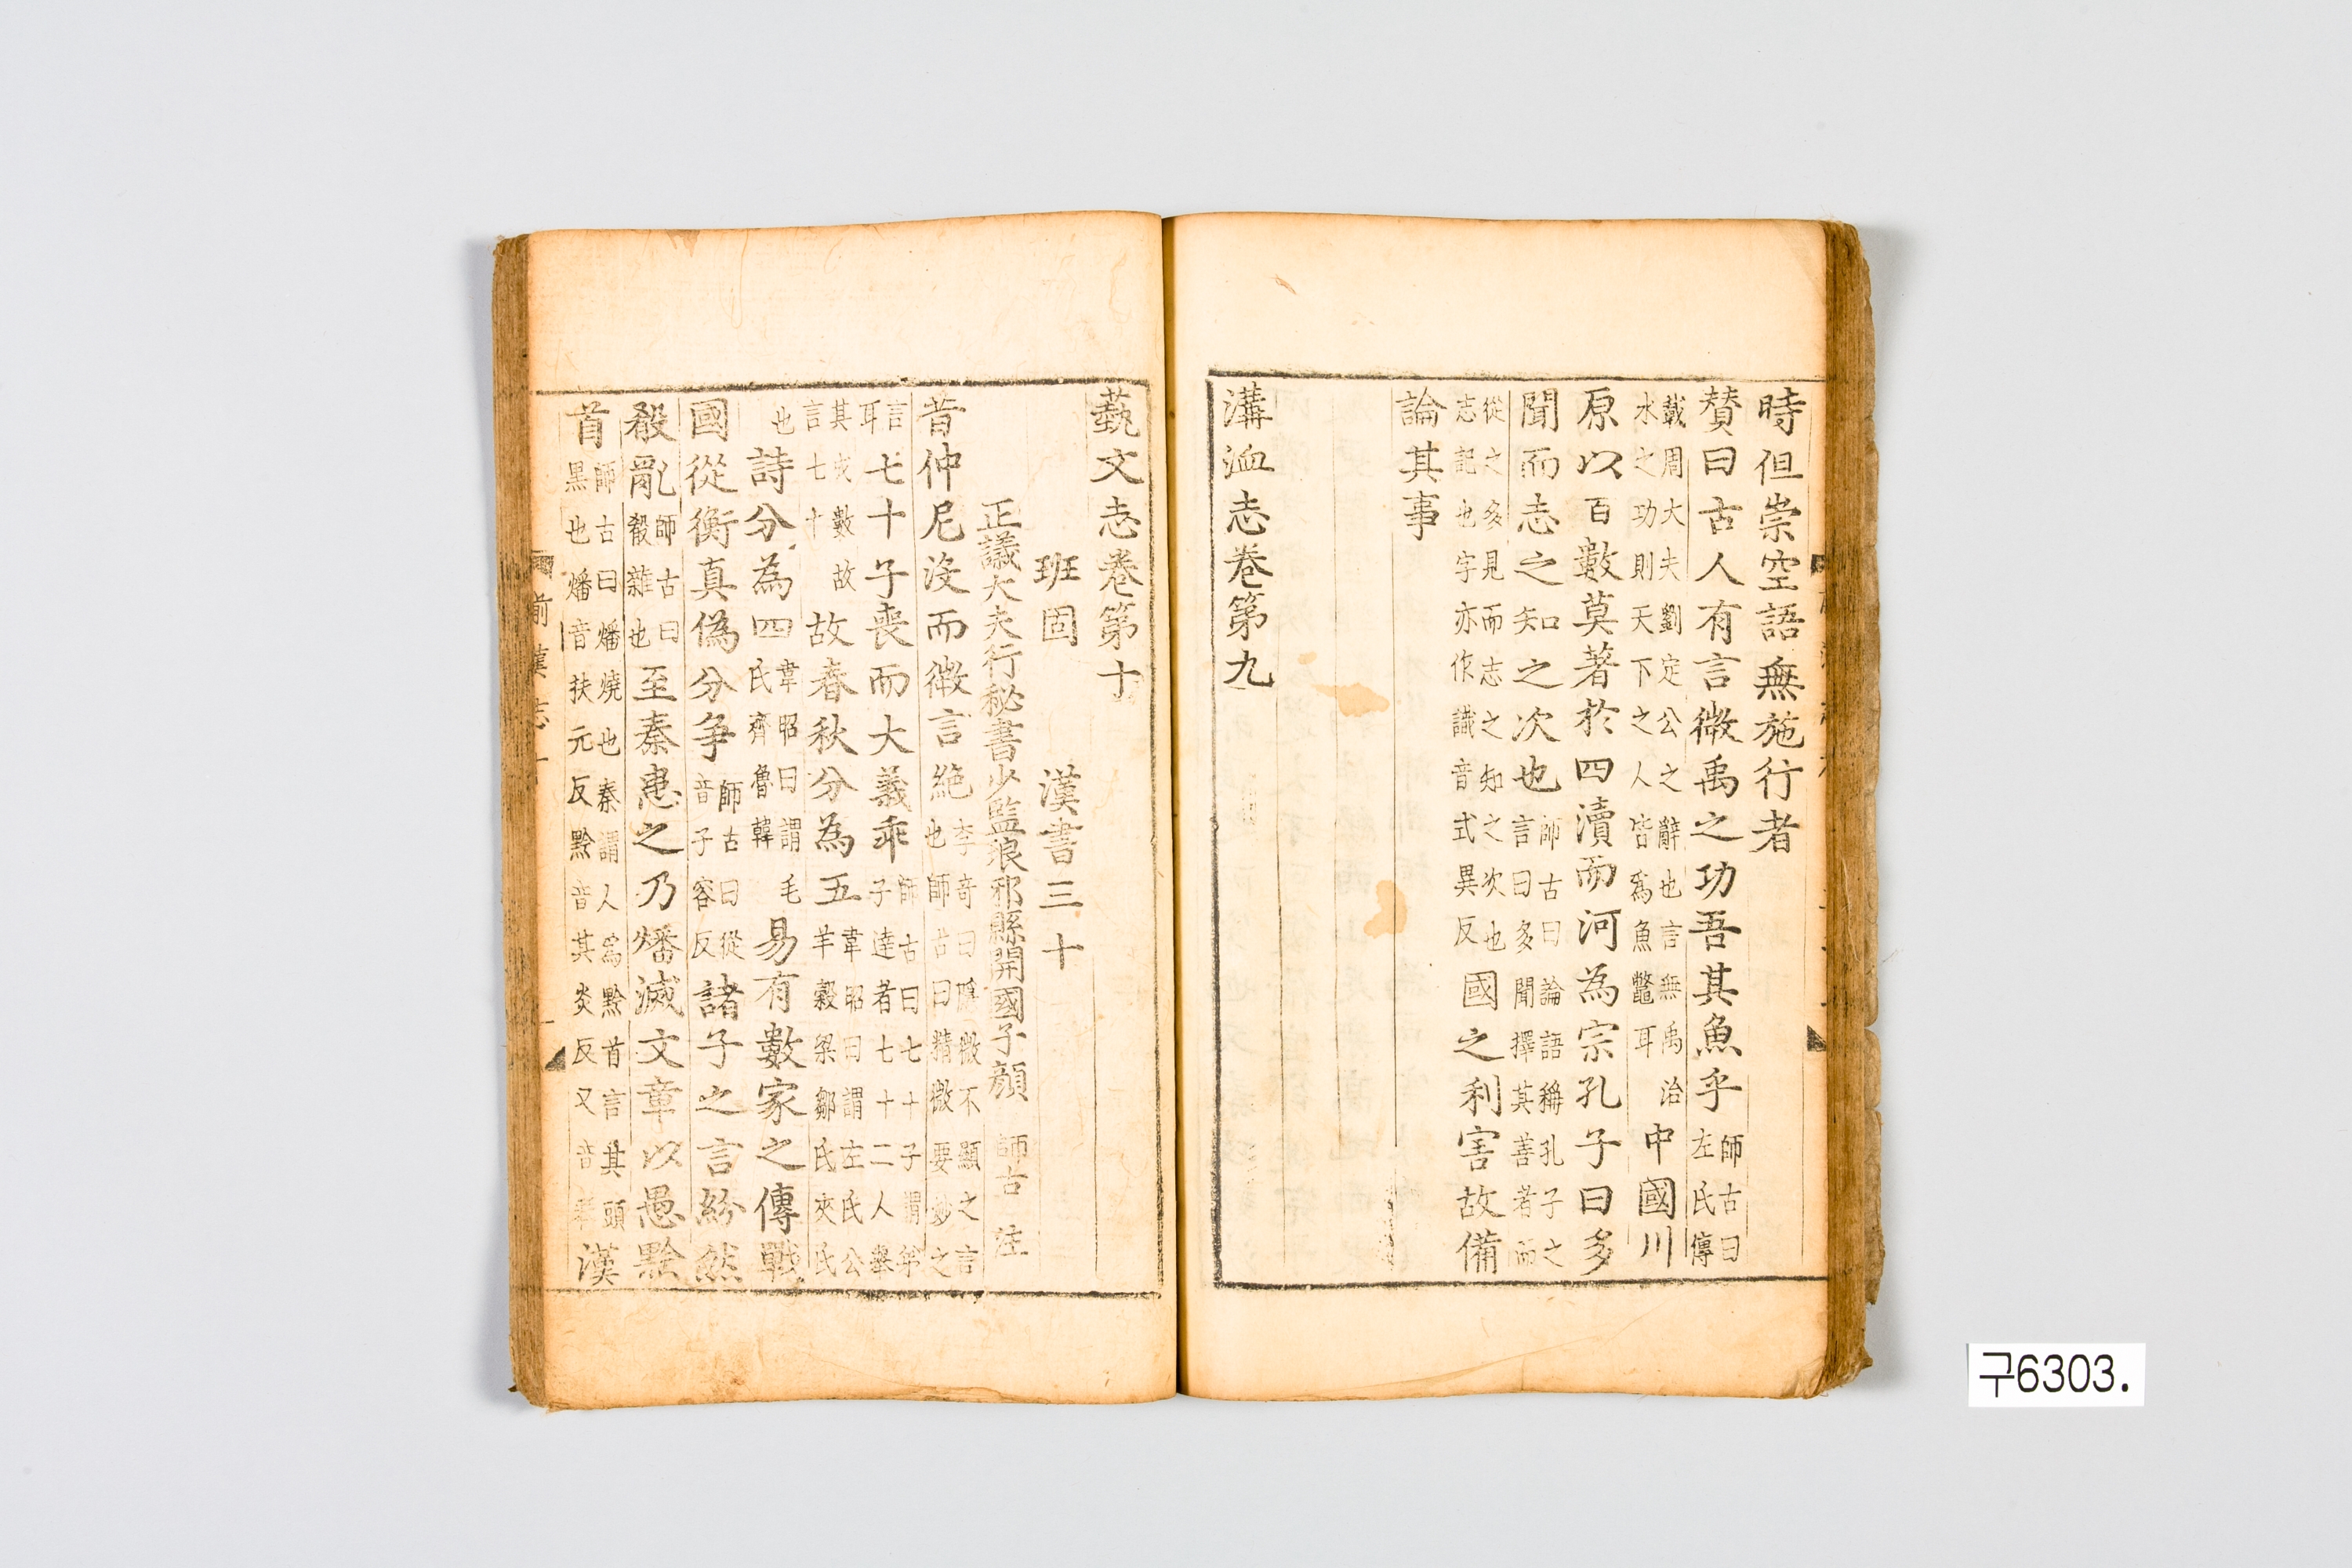 時但崇空語無施行者
贊曰古人有言微禹之功吾其魚乎師古曰左氏傳
載周大夫劉定公之辭也言無禹治水之功則天下之人皆為魚鼈耳中國川
原以百數莫著於四瀆而河為宗孔子曰多
聞而志之知之次也師古曰論語稱孔子之言曰多聞擇其善者而
從之多見而志之知之次也志記也字亦作識音式異反國之利害故備
論其事
溝洫志卷第九
藝文志卷第十
班固 漢書三十
正議大夫行秘書少監琅邪縣開國子顏 師古 注
昔仲尼沒而微言絶李奇曰隱微不顯之言也師古曰精微要妙之
言耳七十子喪而大義乖師古曰七十子謂弟子達者七十二人舉
其成數故言七十故春秋分為五韋昭曰謂左氏公羊穀梁鄒氏夾氏
也詩分為四韋昭曰謂毛氏齊魯韓易有數家之傳戰
國從衡真偽分争師古曰從音子容反諸子之言紛然
殽亂師古曰殽雜也至秦患之乃燔滅文章以愚黔
首師古曰燔燒也秦謂人為黔首言其頭黑也燔音扶元反黔音其炎反又音 漢
前漢志十
구6303.